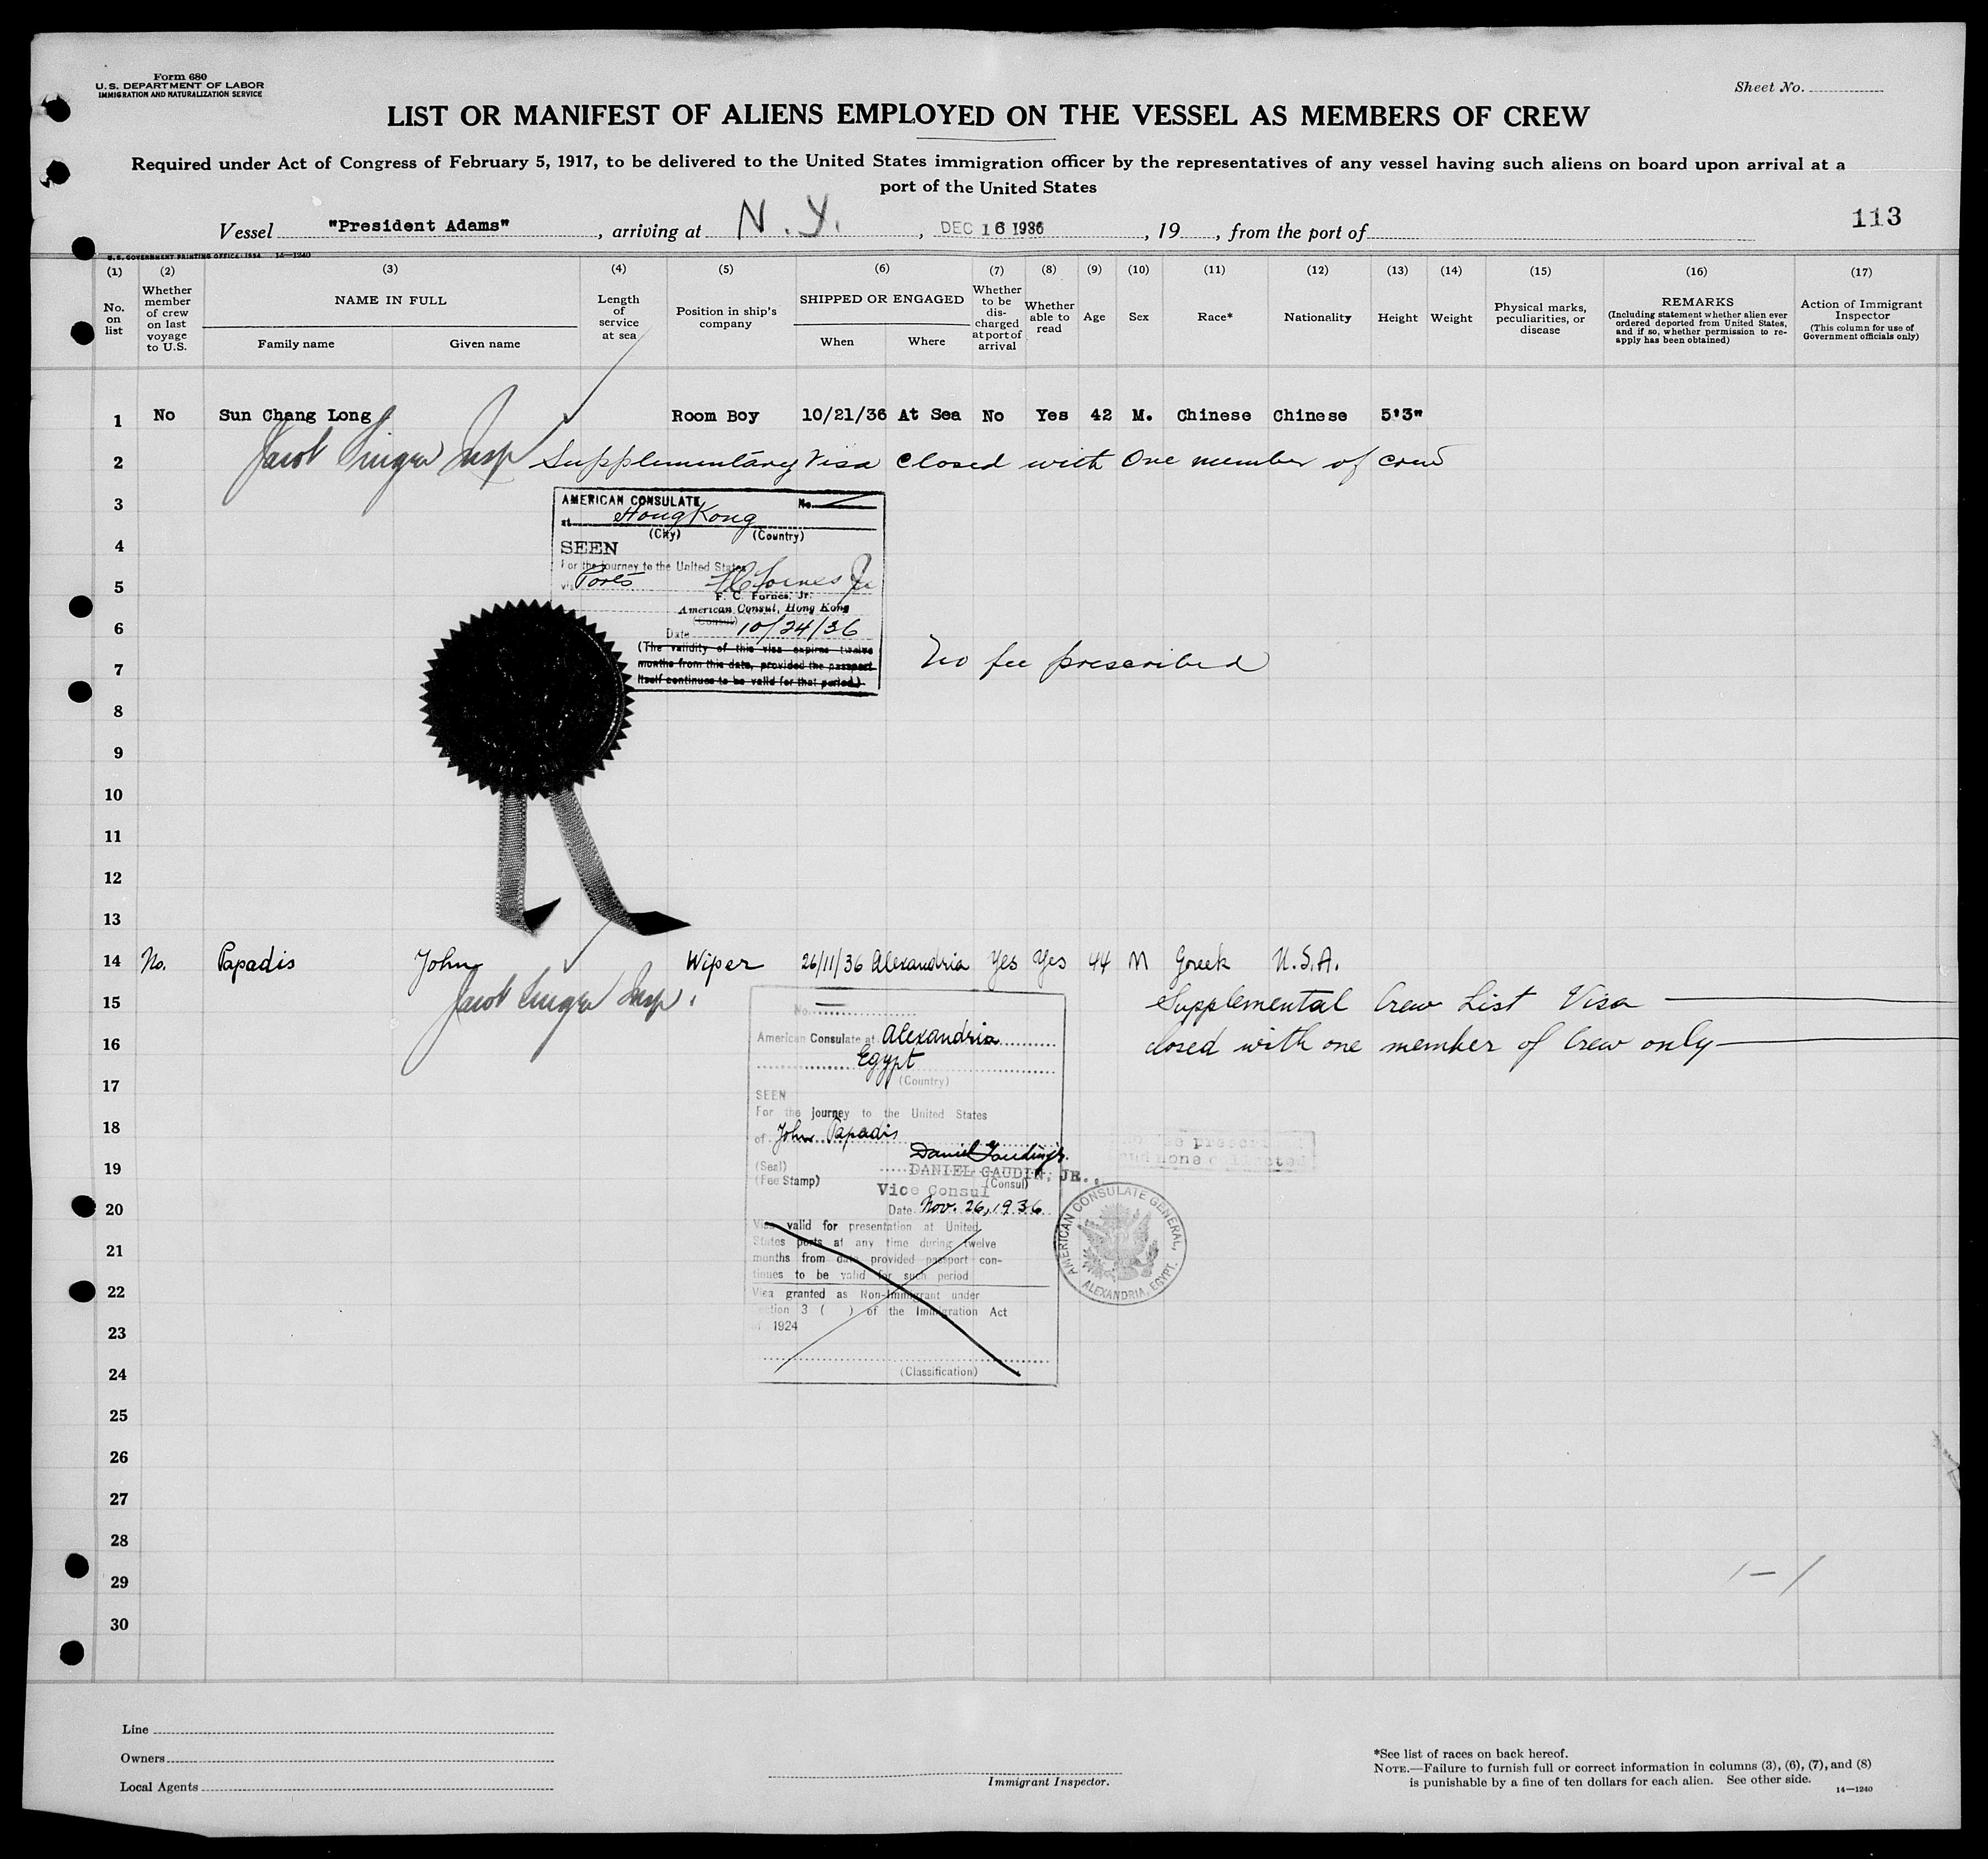 Form 680
U. S. DEPARTMENT OF LABOR
IMMIGRATION AND NATURALIZATION SERVICE
Sheet No.
LIST OR MANIFEST OF ALIENS EMPLOYED ON THE VESSEL AS MEMBERS OF CREW
Required under Act of Congress of February 5, 1917, to be delivered to the United States immigration officer by the representatives of any vessel having such aliens on board upon arrival at a
port of the United States
Vessel "President Adams", arriving at N. Y., DEC 16 1936, 19, from the port of
113
U. S. GOVERNMENT PRINTING OFFICE: 1934 14—1240
(1) (2) (3) (4) (5) (6) (7) (8) (9) (10) (11) (12) (13) (14) (15) (16) (17)
No. on list
Whether member of crew on last voyage to U.S.
NAME IN FULL
Family name
Given name
Length of service at sea
Position in ship's company
SHIPPED OR ENGAGED
When
Where
Whether to be discharged at port of arrival
Whether able to read
Age
Sex
Race*
Nationality
Height
Weight
Physical marks, peculiarities, or disease
REMARKS
(Including statement whether alien ever ordered deported from United States, and if so, whether permission to re-apply has been obtained)
Action of Immigrant Inspector
(This column for use of Government officials only)
1 No Sun Chang Long Room Boy 10/21/36 At Sea No Yes 42 M. Chinese Chinese 5'3"
2 Jacob Singer Insp Supplementary Visa closed with One member of crew
3
AMERICAN CONSULATE No.
at Hong Kong
(City) (Country)
4
SEEN
For the journey to the United States
5
via Ports
F. C. Fornes, Jr.
American Consul, Hong Kong
(Consul)
6
Date 10/24/36
(The validity of this visa expires twelve
months from this date, provided the passport
itself continues to be valid for that period.)
7 No fee prescribed
8
9
10
11
12
13
14 No. Papadis John Wiper 26/11/36 Alexandria Yes Yes 44 M Greek U.S.A.
15 Jacob Singer Insp. Supplemental Crew List Visa
16 closed with one member of Crew only
No.
American Consulate at Alexandria
Egypt
17
(Country)
SEEN
For the journey to the United States
18
of John Papadis
Daniel Gaudin Jr.
19
(Seal)
DANIEL GAUDIN, JR.,
(Fee Stamp)
(Consul)
Vice Consul
20
Date Nov. 26, 1936
Visa valid for presentation at United
21
States ports at any time during twelve
months from date provided passport con-
tinues to be valid for such period
22
Visa granted as Non-Immigrant under
Section 3 ( ) of the Immigration Act
of 1924
23
24
(Classification)
No fee prescribed
and none collected
AMERICAN CONSULATE GENERAL,
ALEXANDRIA, EGYPT.
25
26
27
28
29
1 – 1
30
Line
Owners
Local Agents
Immigrant Inspector.
*See list of races on back hereof.
NOTE.—Failure to furnish full or correct information in columns (3), (6), (7), and (8)
is punishable by a fine of ten dollars for each alien. See other side.
14—1240